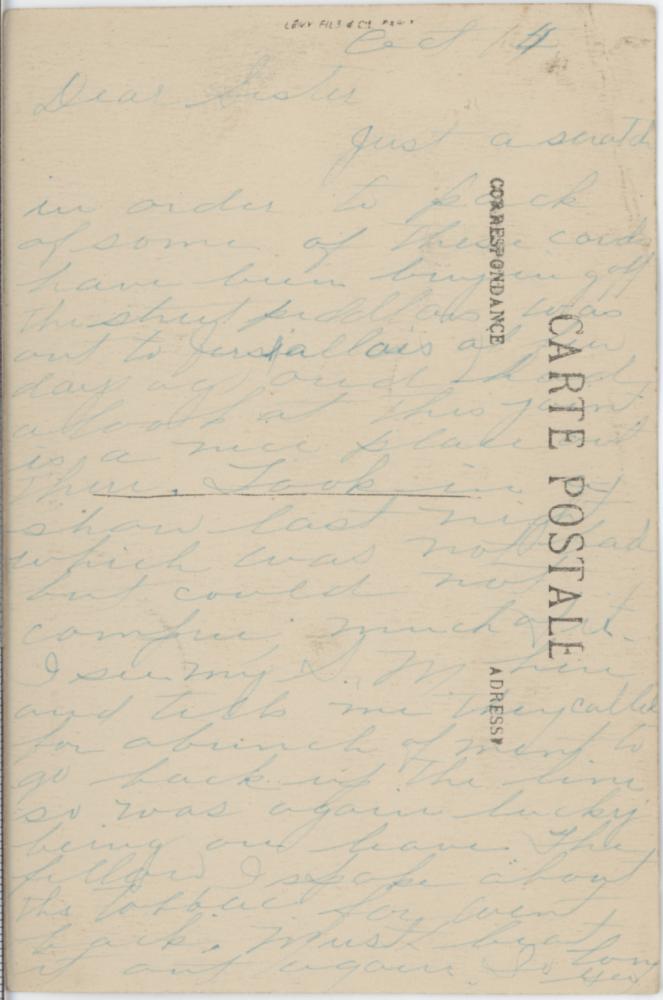 LEVY FILS & Cie PARIS
Oct 14
Dear Sister
Just a scratch
in order to pack
of some of these cards
have been buying off
the street peddlars was
out to Versallais a few
day ago and had
a look at this joint
is a nice place out
there. Took in a
show last night
which was not bad
but could not
compre much of it.
I seen my S. M. here
and tells me they called
for a bunch of ment to
go back up the line
so was again lucky
being on leave The
fellow I spoke about
the tobbac for went
back. Must beat
it out again. So long
CORRESPONDANCE
CARTE POSTALE
ADRESSE